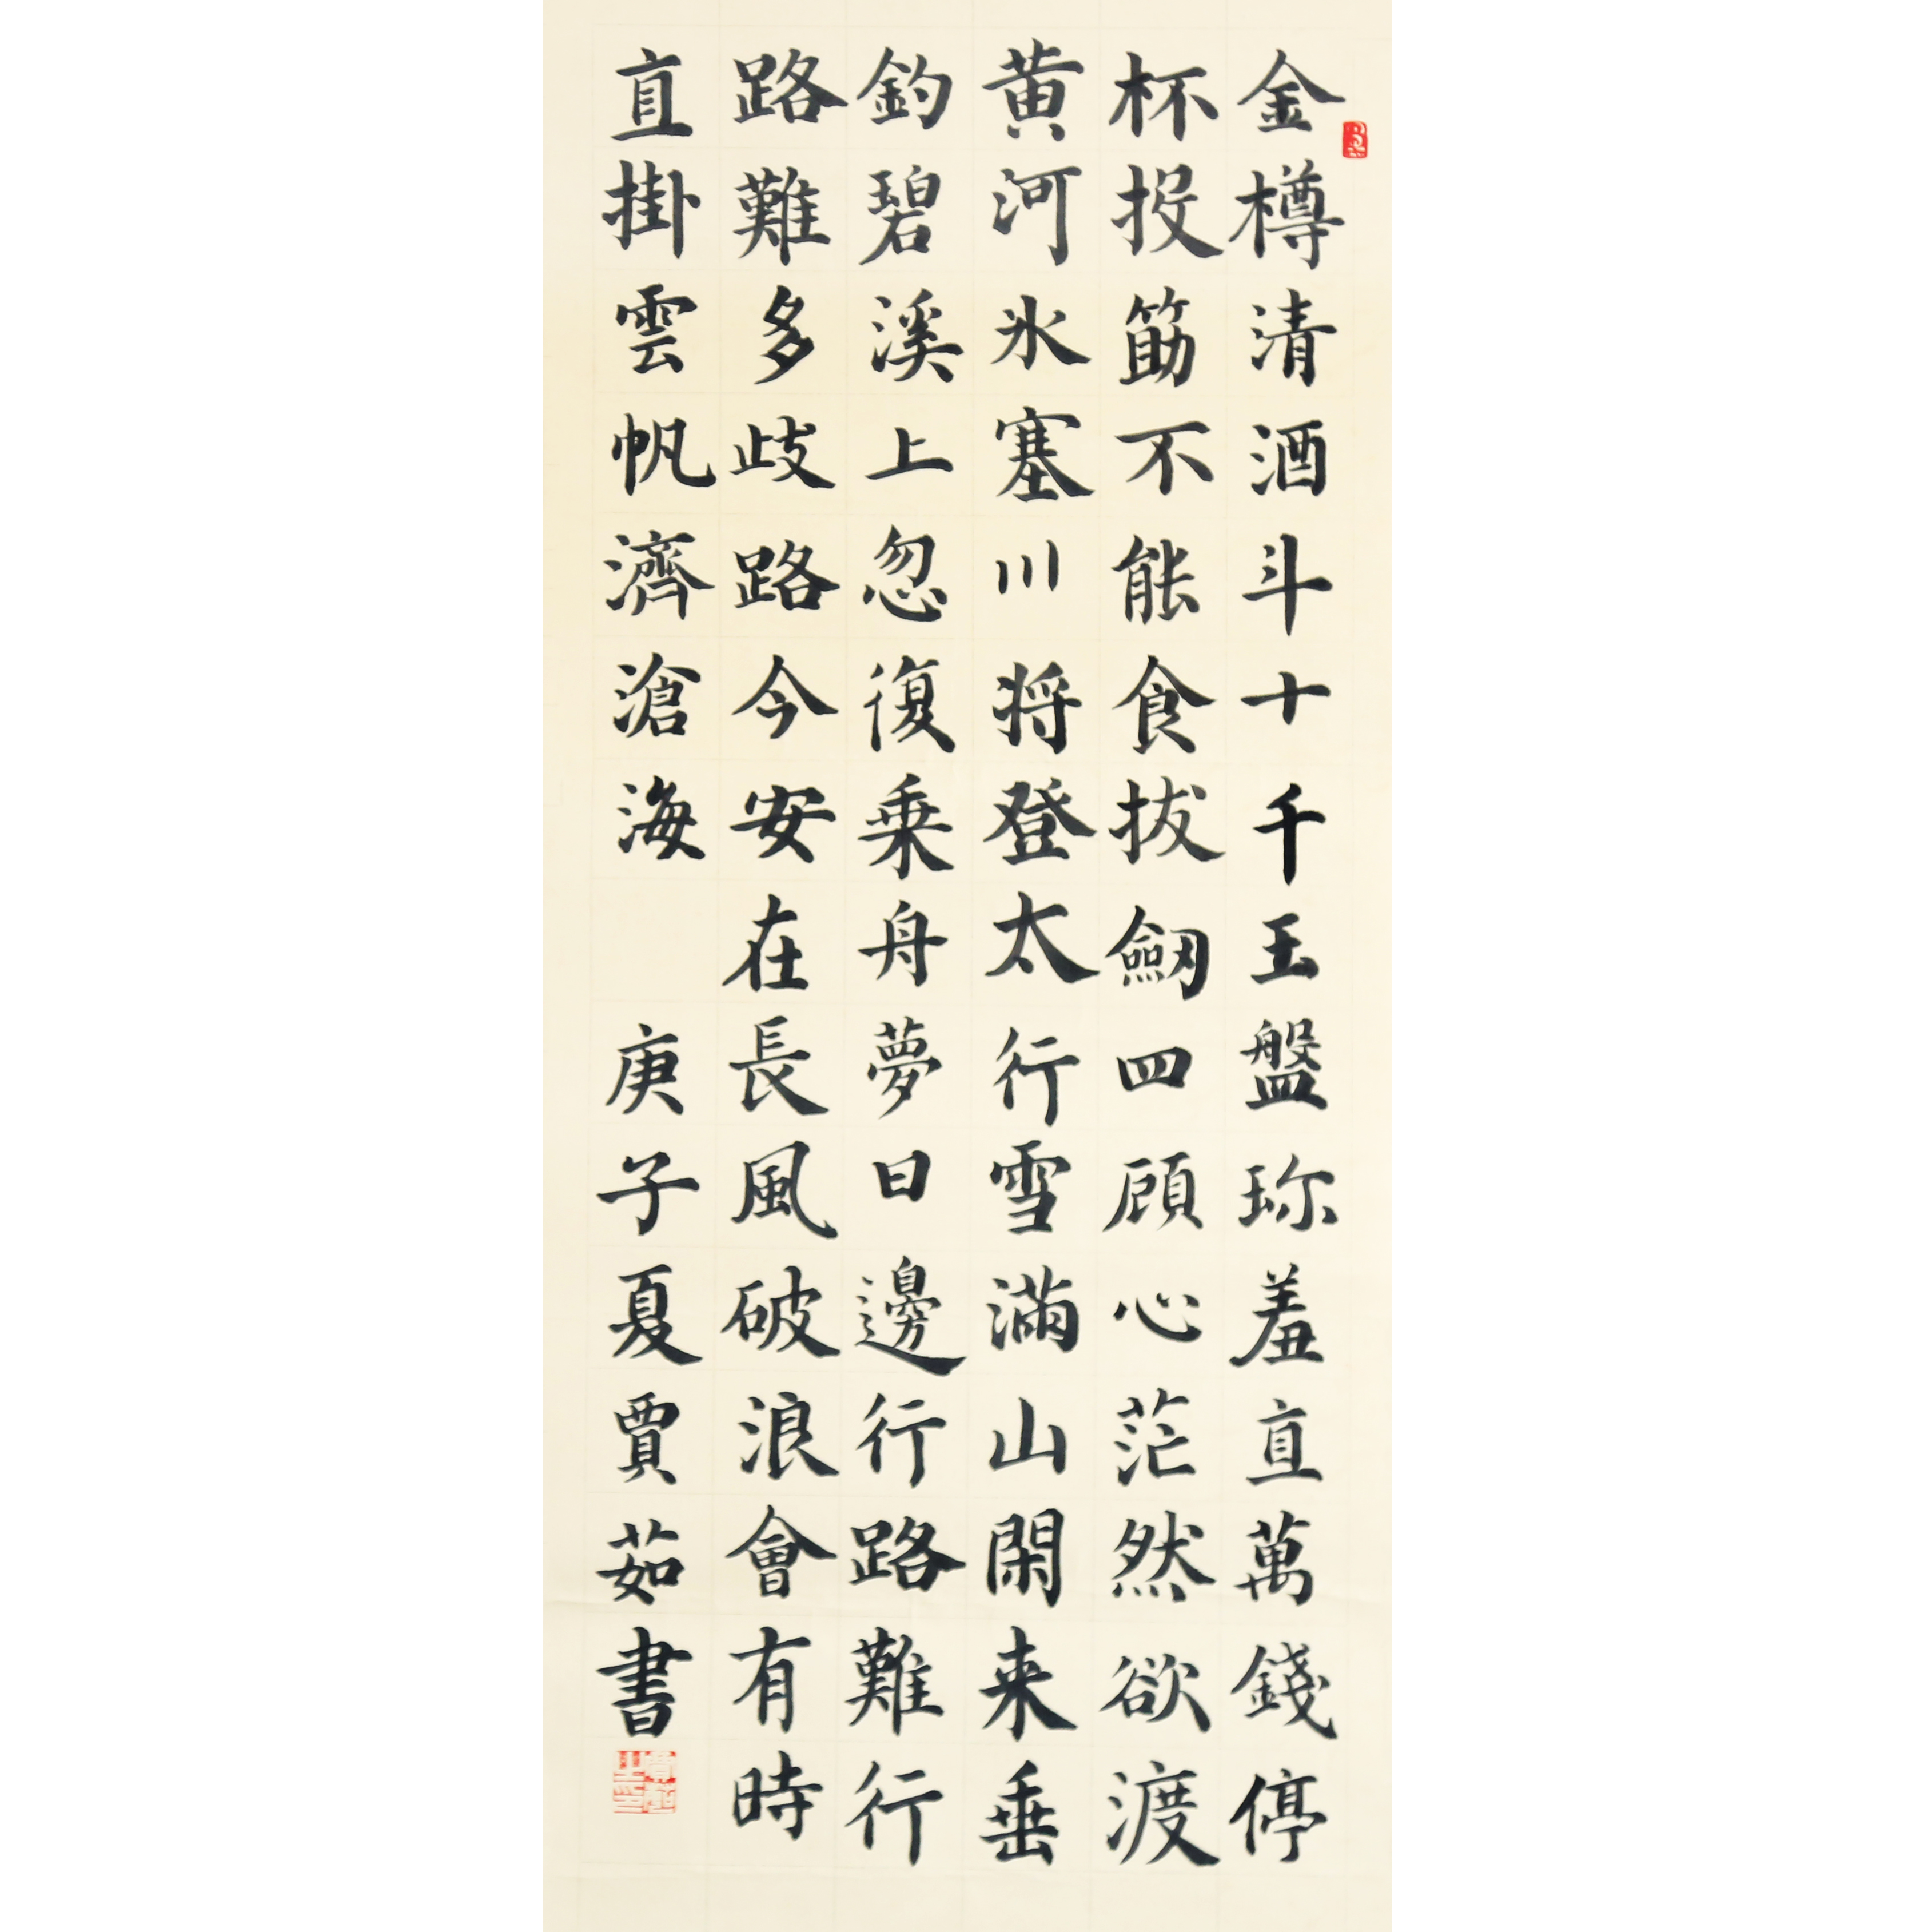 金樽清酒斗十千玉盤珎羞直萬錢停
杯投筯不能食拔劒四頋心茫然欲渡
黄河氷塞川将登太行雪滿山閑来垂
釣碧溪上忽復乗舟夢日邊行路難行
路難多歧路今安在長風破浪會有時
直掛雲帆濟滄海 庚子夏賈茹書
賈茹之印